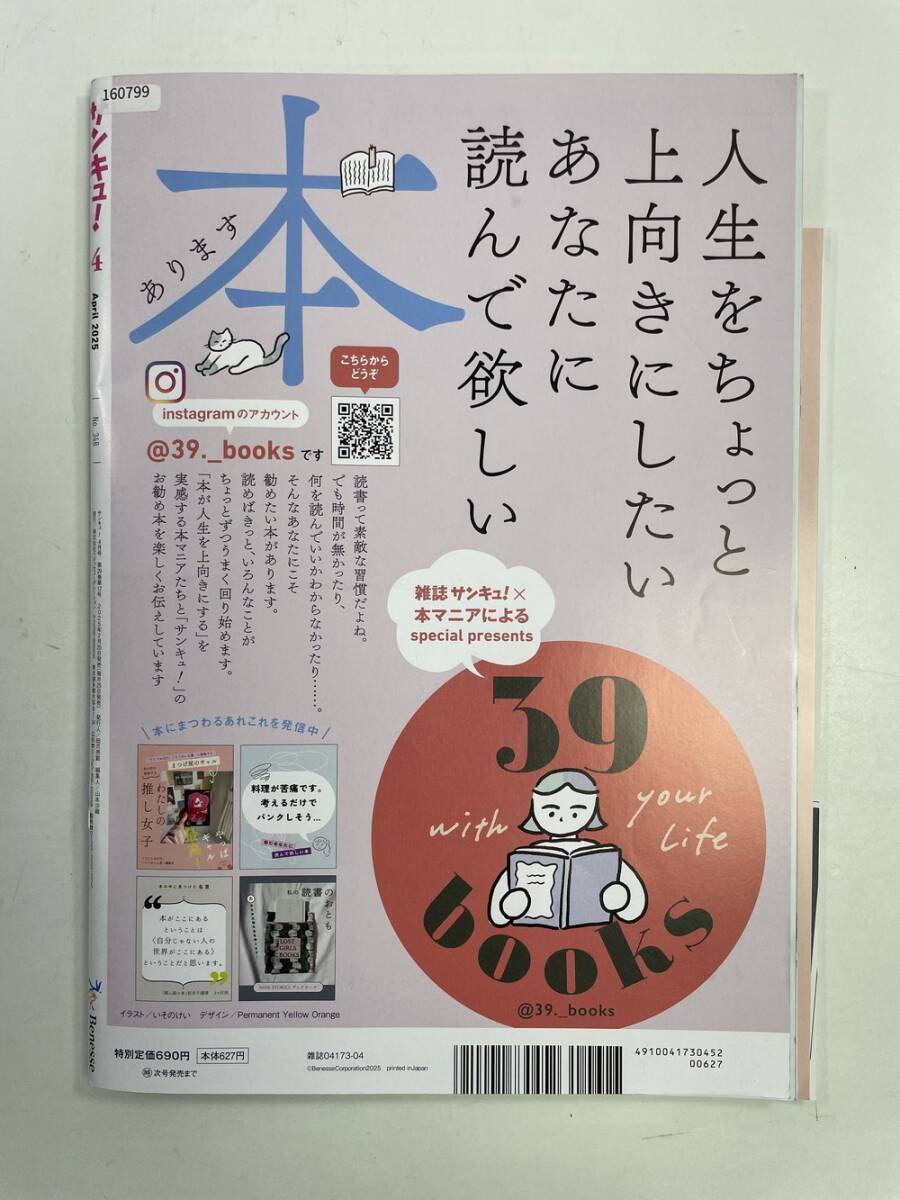 160799
サンキュ!
4
April 2025
No. 348
Benesse
人生をちょっと
上向きにしたい
あなたに
読んで欲しい
本
あります
こちらから
どうぞ
instagramのアカウント
@39._booksです
読書って素敵な習慣だよね。
でも時間が無かったり、
何を読んでいいかわからなかったり……。
そんなあなたにこそ
勧めたい本があります。
読めばきっと、いろんなことが
ちょっとずつうまく回り始めます。
「本が人生を上向きにする」を
実感する本マニアたちと「サンキュ!」の
お勧め本を楽しくお伝えしています
雑誌 サンキュ!×
本マニアによる
special presents
39
with your Life
books
@39._books
\ 本にまつわるあれこれを発信中 /
まつげ屋のギャル
わたしの
推し女子
料理が苦痛です。
考えるだけで
パンクしそう…
本の中に見つけた 名言
本がここにある
ということは
〈自分じゃない人の
世界がここにある〉
ということだと思います。
私の 読書のおとも
LOST
GIRLS
BOOKS
イラスト/いそのけい デザイン/Permanent Yellow Orange
特別定価690円 本体627円
次号発売まで
雑誌04173-04
©BenesseCorporation2025 printed inJapan
4910041730452
00627